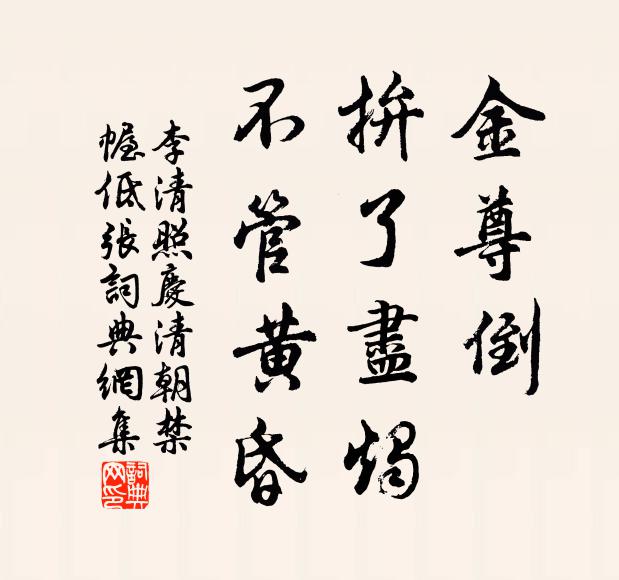 金尊倒
拚了盡燭
不管黄昏
李清照慶清朝禁
幄低張詞典網集
詞典
网印